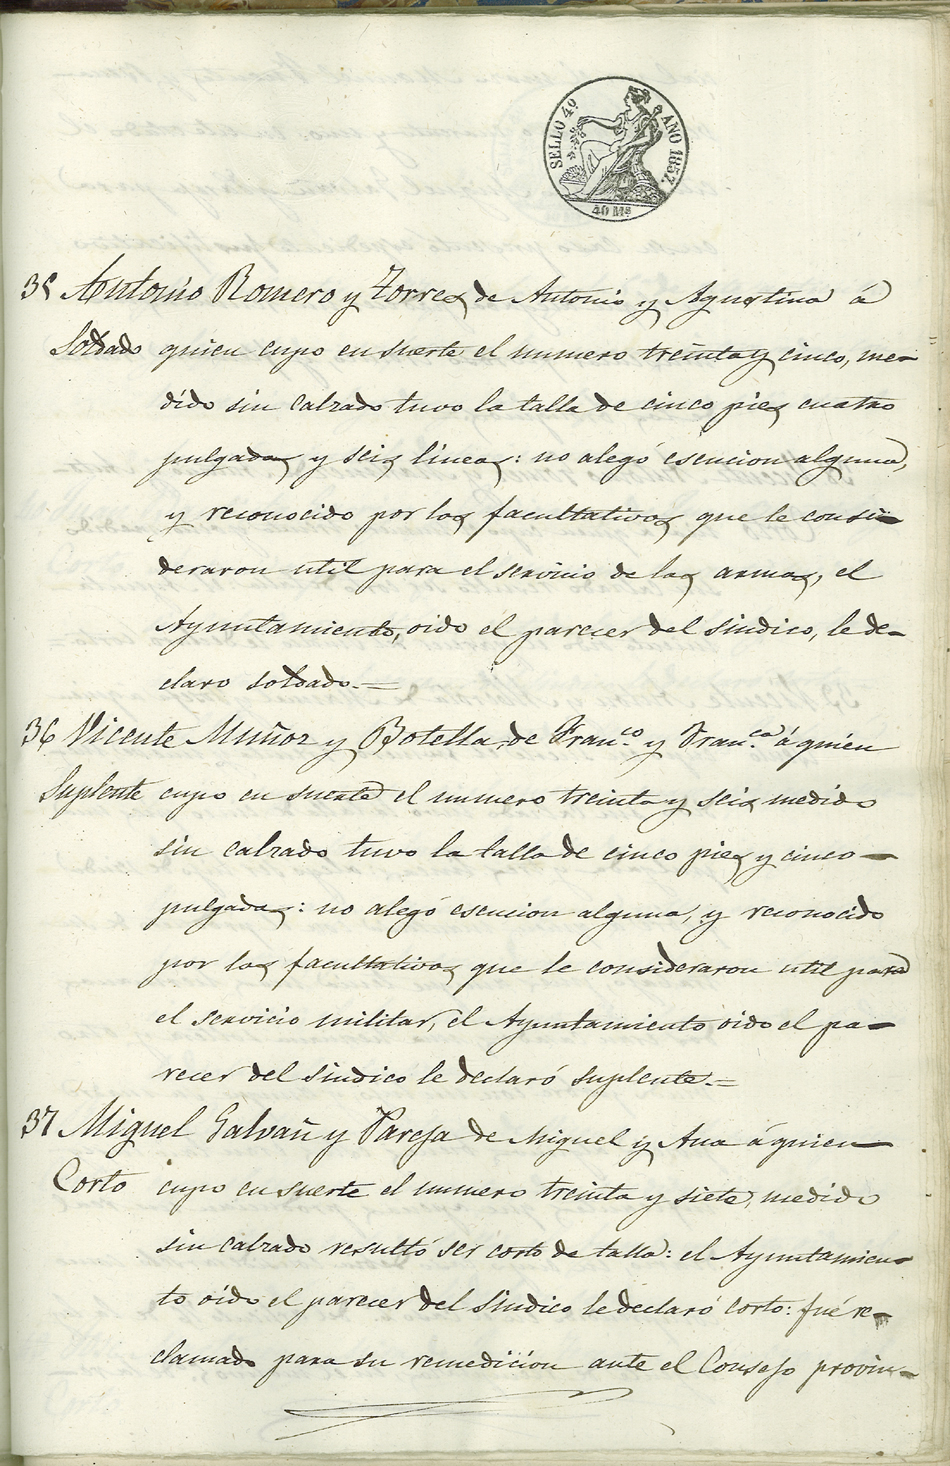 SELLO 4º AÑO 1857.
40 Ms
35 Antonio Romero y Torres, de Antonio y Agustina á
Soldado quien cupo en suerte el numero treinta y cinco, me-
dido sin calzado tuvo la talla de cinco pies cuatro
pulgadas y seis lineas: no alegó esencion alguna,
y reconocido por los facultativos que le consi-
deraron util para el servicio de las armas, el
Ayuntamiento, oido el parecer del sindico, le de-
claro soldado.=
36 Vicente Muñoz y Botella, de Fran.co y Fran.ca á quien
Suplente cupo en suerte el numero treinta y seis medido
sin calzado tuvo la talla de cinco pies y cinco
pulgadas: no alegó esencion alguna, y reconocido
por los facultativos que le consideraron util para
el servicio militar, el Ayuntamiento oido el pa-
recer del sindico le declaró suplente.=
37 Miguel Galvañ y Pareja de Miguel y Ana á quien
Corto cupo en suerte el numero treinta y siete, medido
sin calzado resultó ser corto de talla: el Ayuntamien-
to oido el parecer del sindico le declaró corto: fué re-
clamado para su remedicion ante el Consejo provin-